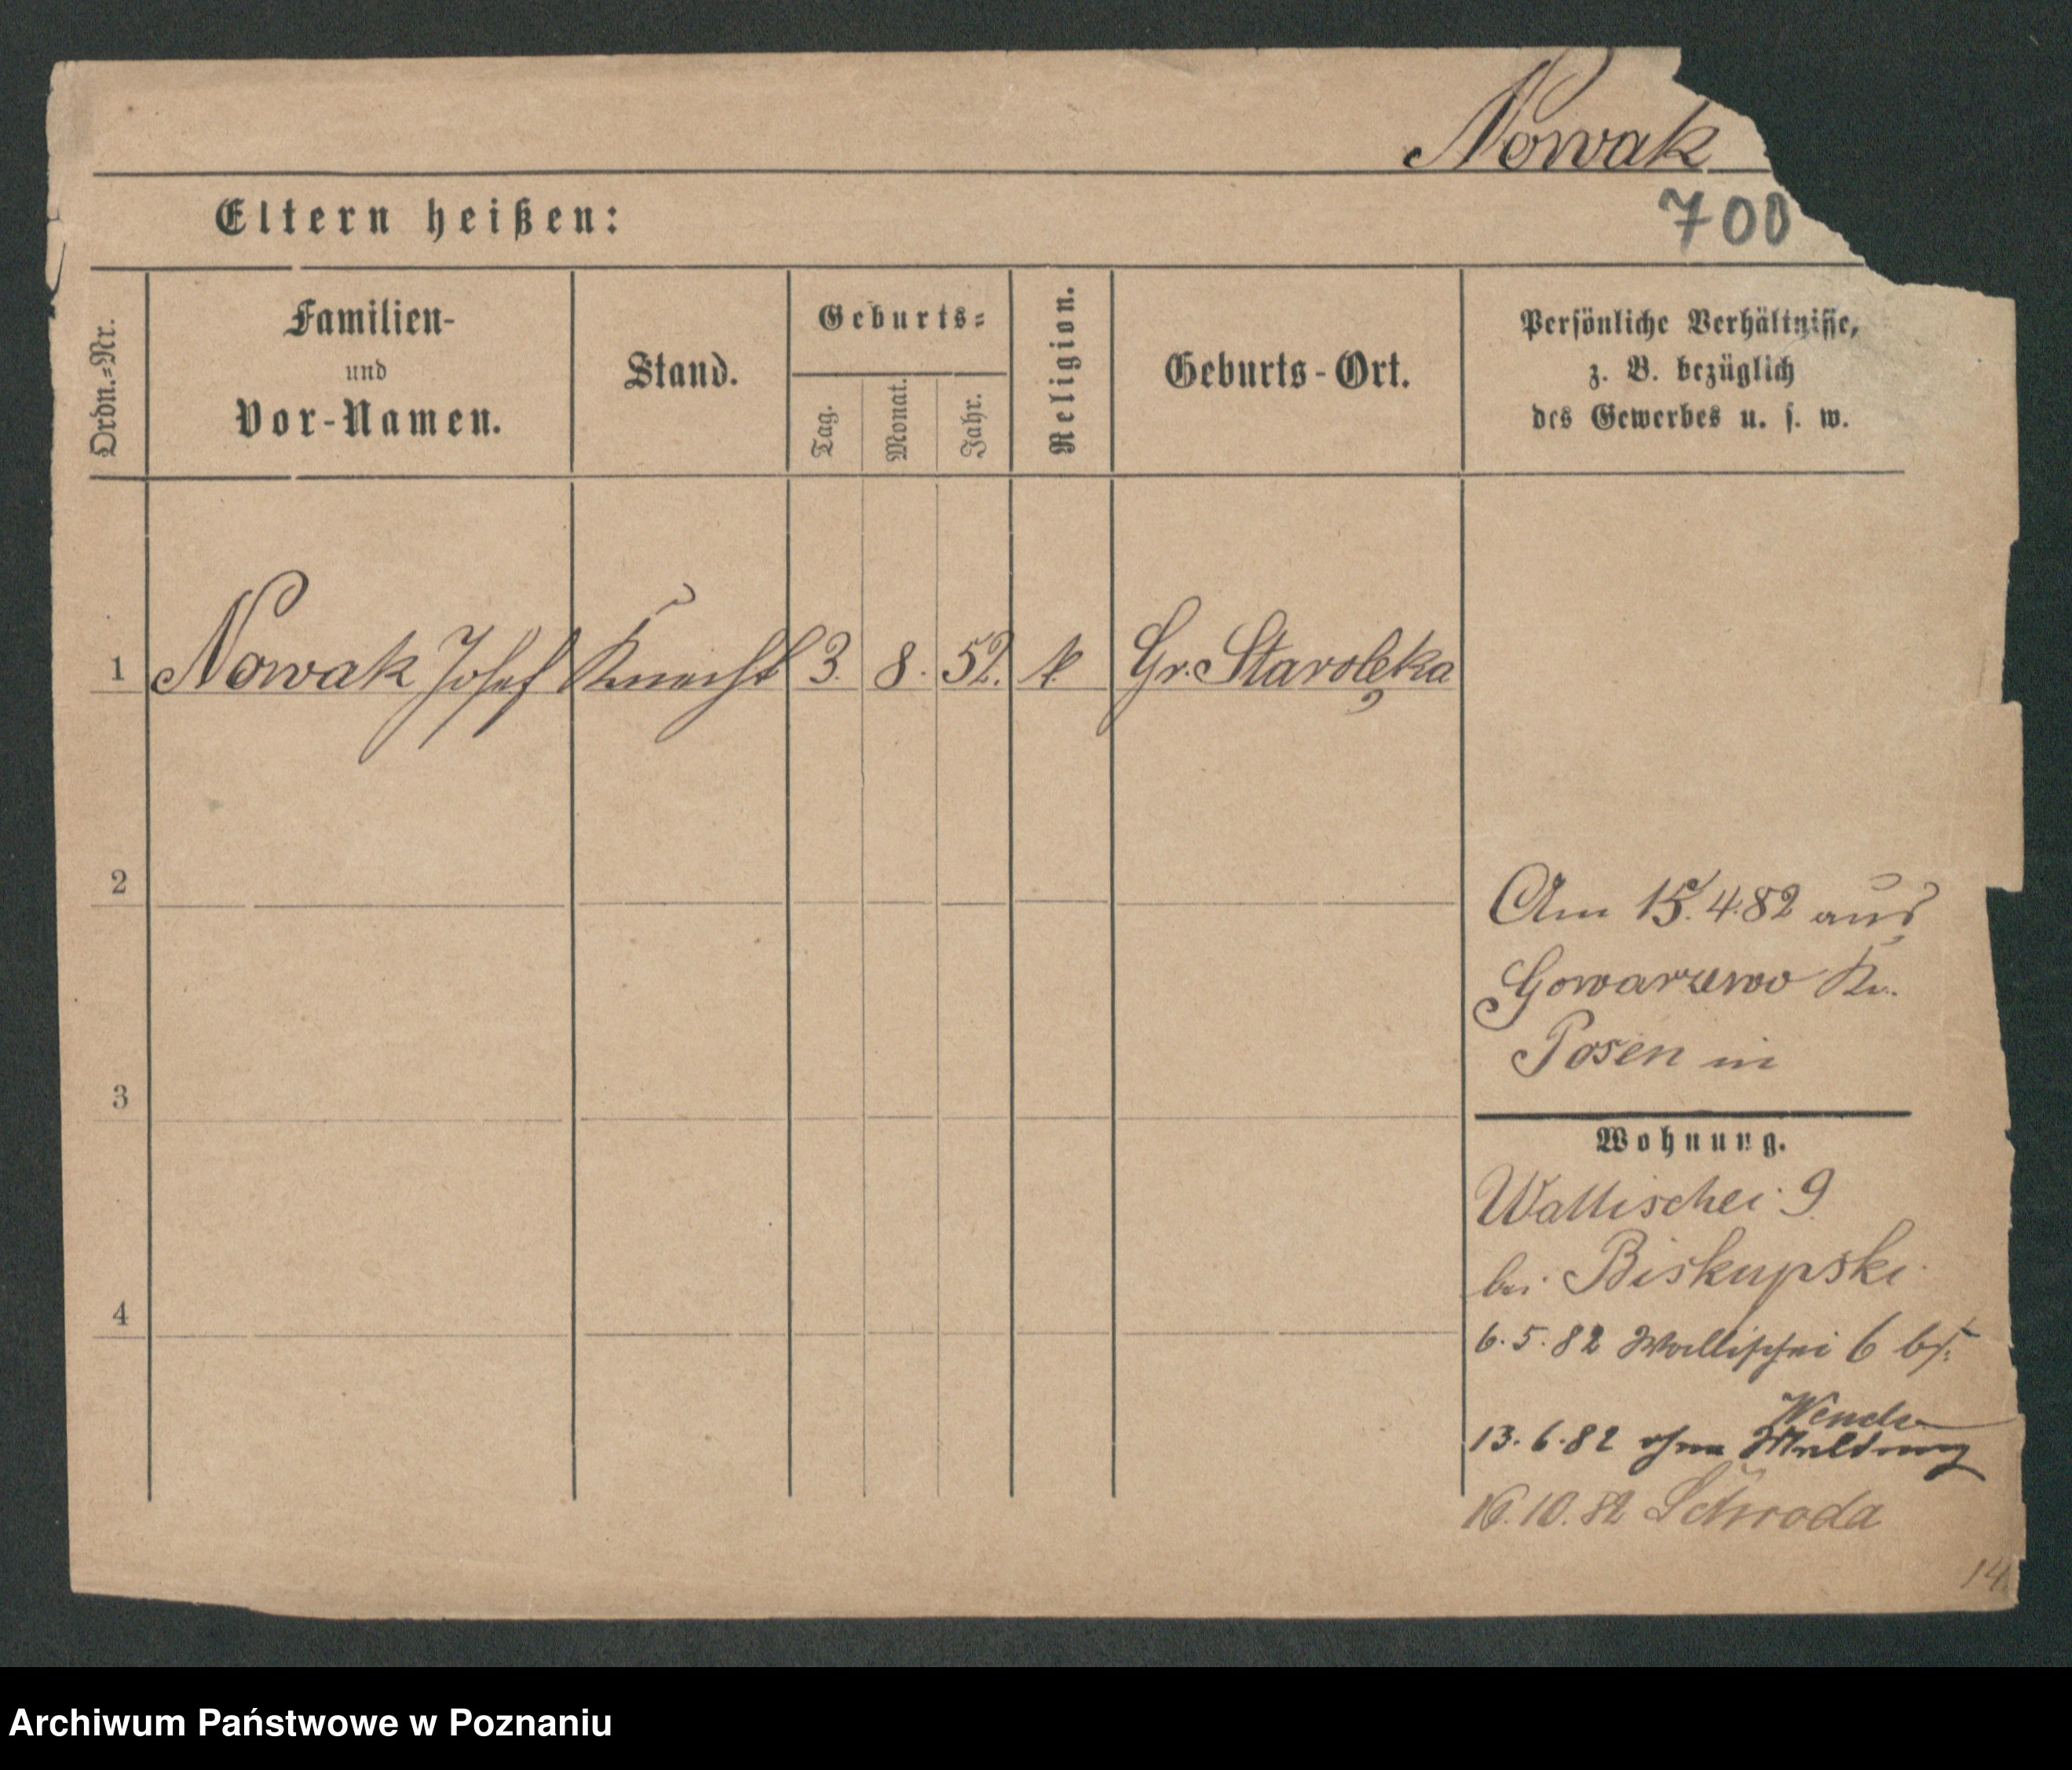 Nowak
Eltern heißen:
700
Ordn.=Nr.
Familien-
und
Vor-Namen.
Stand.
Geburts=
Tag.
Monat.
Jahr.
Religion.
Geburts-Ort.
Persönliche Verhältnisse,
z. B. bezüglich
des Gewerbes u. s. w.
1 Nowak Josef Knecht 3. 8. 52. k. Gr. Starolęka
2
Am 15. 4. 82 aus
Gowarzewo Kr.
Posen in
3
Wohnung.
Wallischei 9
bei Biskupski
4
6. 5. 82 Wallischei 6 bei
Wenda
13. 6. 82 ohne Meldung
16. 10. 82 Schroda
14
Archiwum Państwowe w Poznaniu